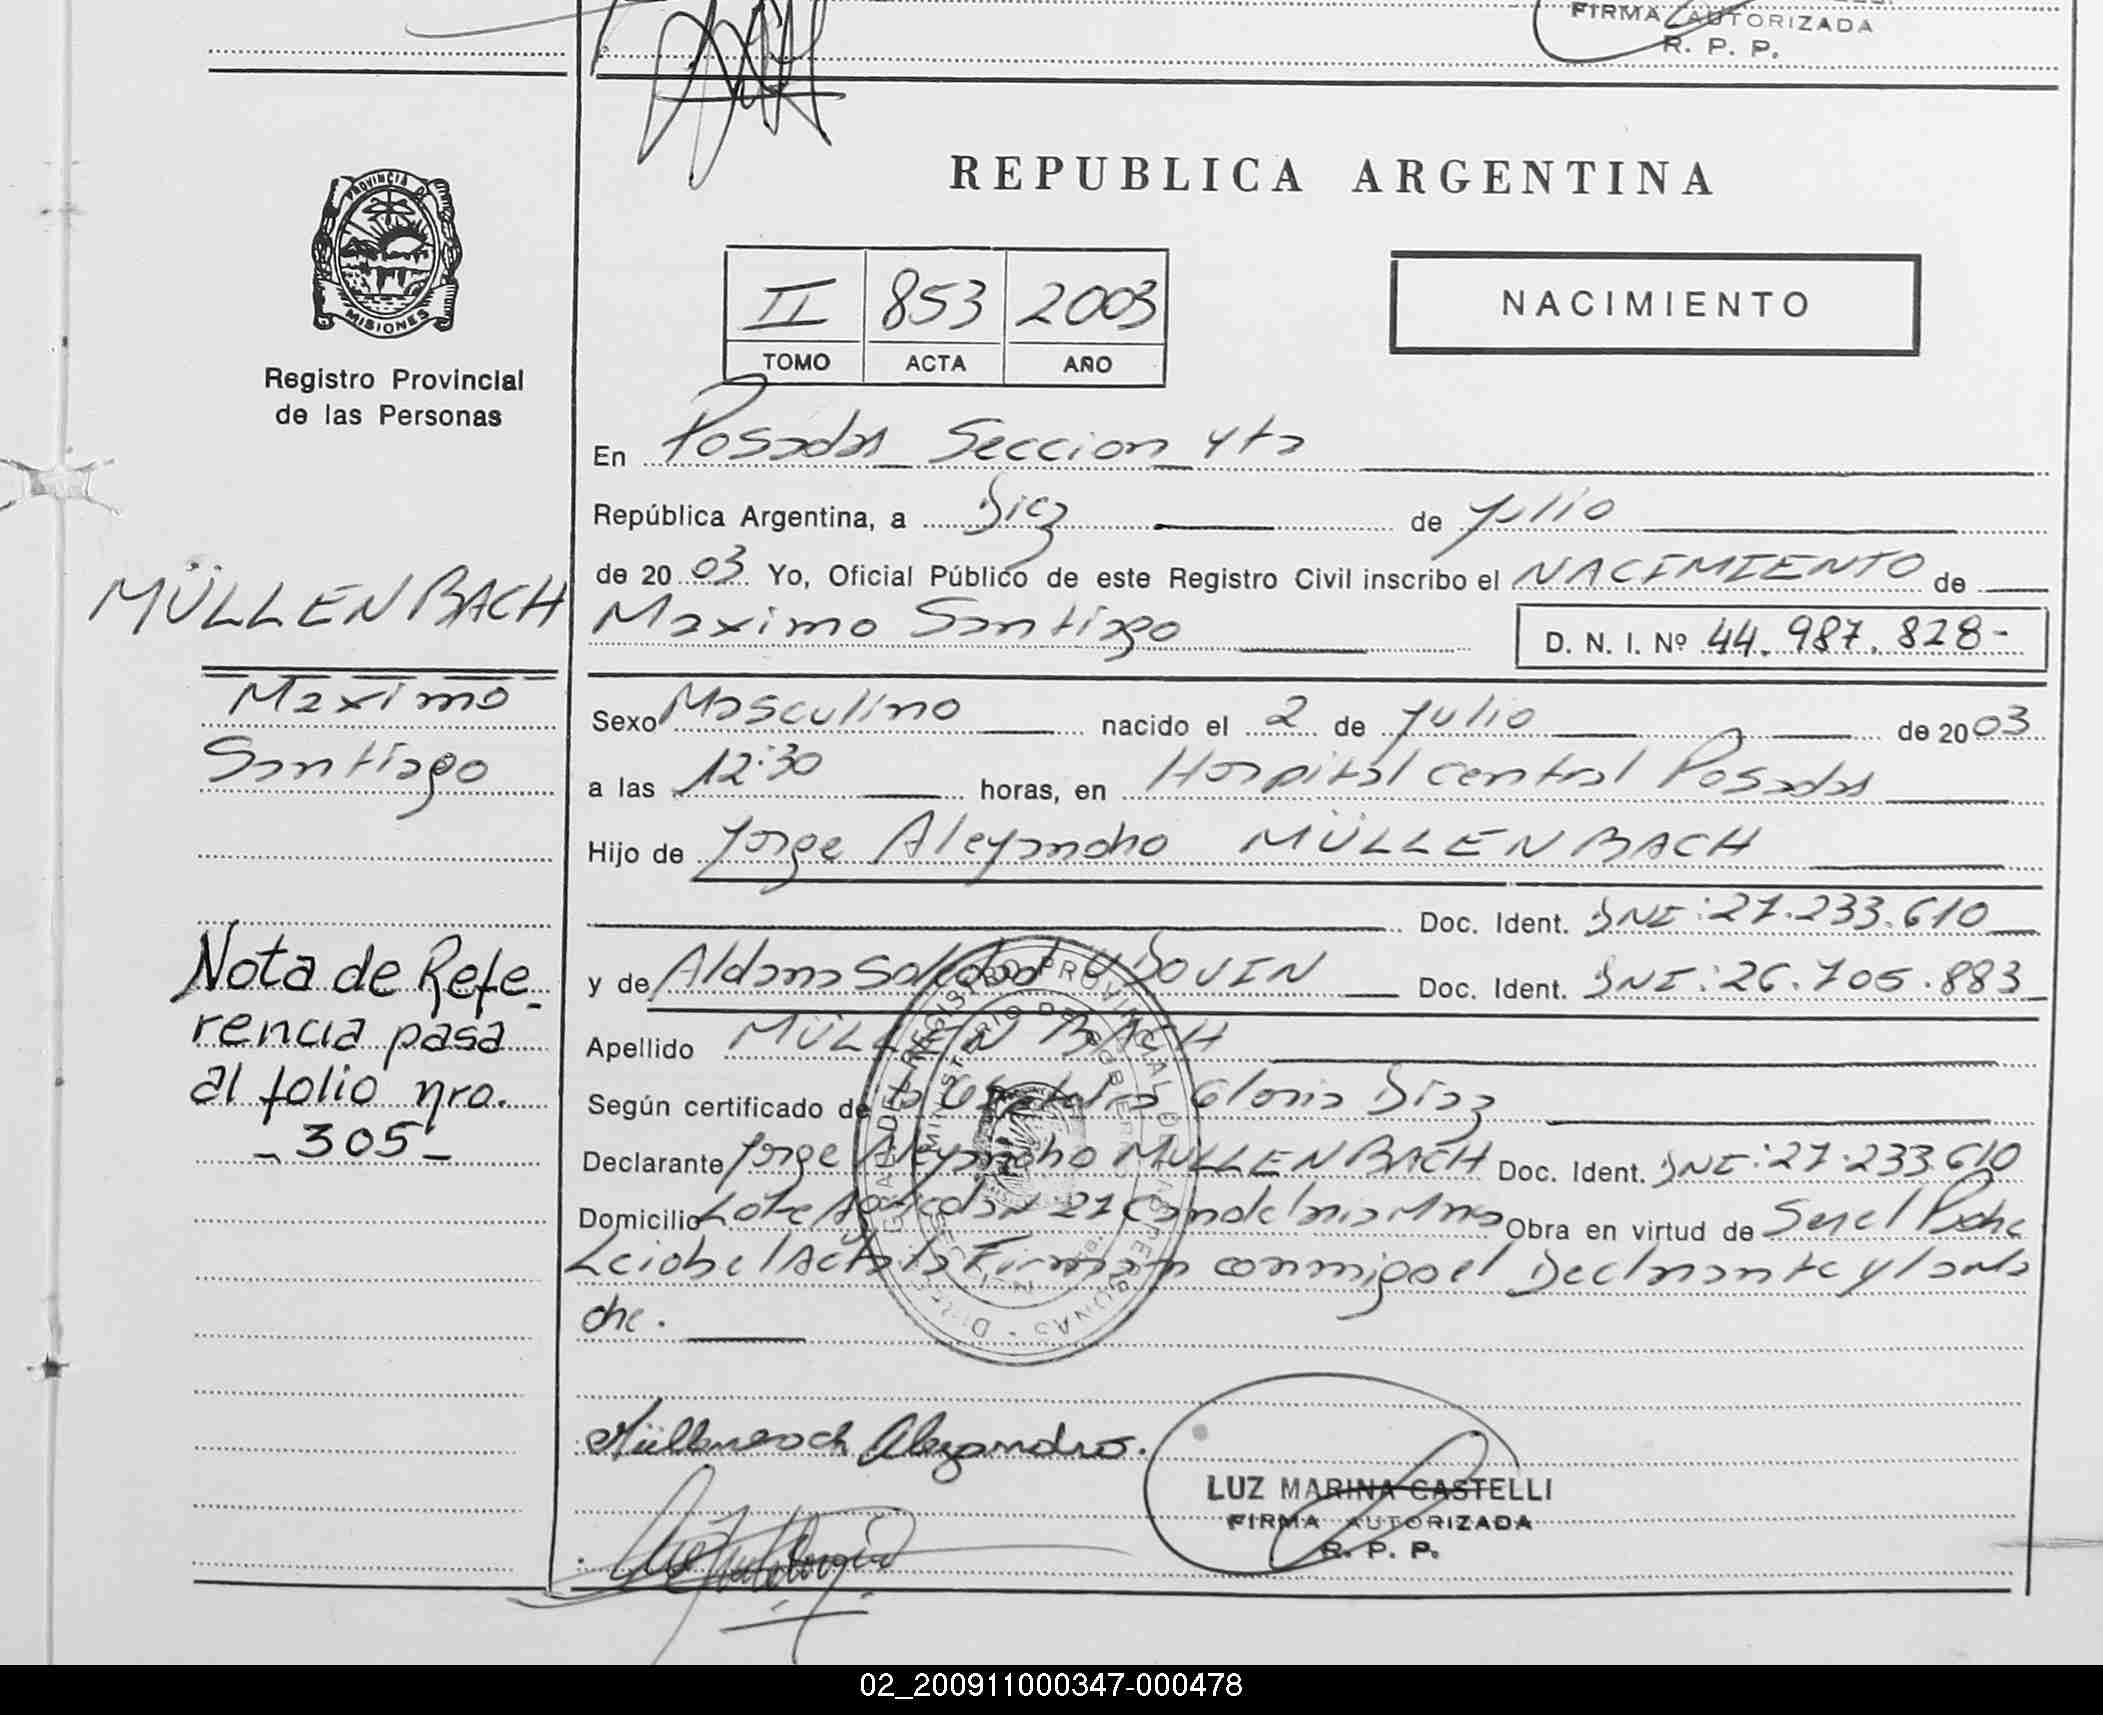 FIRMA AUTORIZADA
R. P. P.
PROVINCIA DE
MISIONES
Registro Provincial
de las Personas
REPUBLICA ARGENTINA
II 853 2003
TOMO ACTA AÑO
NACIMIENTO
En Posadas Seccion 4ta
República Argentina, a Diez de Julio
de 2003 Yo, Oficial Público de este Registro Civil inscribo el NACIMIENTO de
MÜLLENBACH
Maximo Santiago
D. N. I. Nº 44.987.828-
Maximo
Santiago
Sexo Masculino nacido el 2 de Julio de 2003
a las 12:30 horas, en Hospital central Posadas
Hijo de Jorge Alejandro MÜLLENBACH
Doc. Ident. DNI: 27.233.610
y de Aldana Soledad UDOVIN Doc. Ident. DNI: 26.705.883
Apellido MÜLLENBACH
Según certificado de la Obstetra Gloria Diaz
Declarante Jorge Alejandro MULLENBACH Doc. Ident. DNI: 27.233.610
Domicilio Lote Agricola 27 Candelaria Mnes Obra en virtud de Ser el Padre
Leida el Acta la Firman conmigo el Declarante y la Ma
dre.
Nota de Refe-
rencia pasa
al folio nro.
- 305 -
Müllenbach Alejandro.
LUZ MARINA CASTELLI
FIRMA AUTORIZADA
R. P. P.
02_200911000347-000478